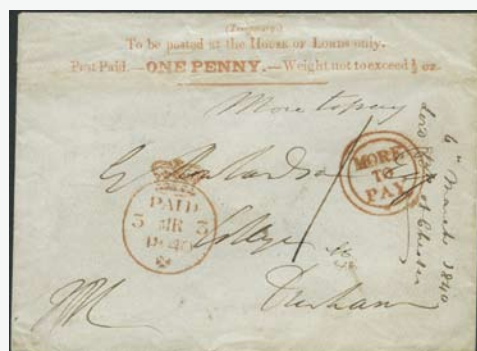 (Temporary.)
To be posted at the House of Lords only.
Post Paid.—ONE PENNY.—Weight not to exceed ½ oz.
More to pay
MORE
TO
PAY
PAID
3 MR 3
1840
College
Durham
6th March 1840
Lord Bishop of Chester